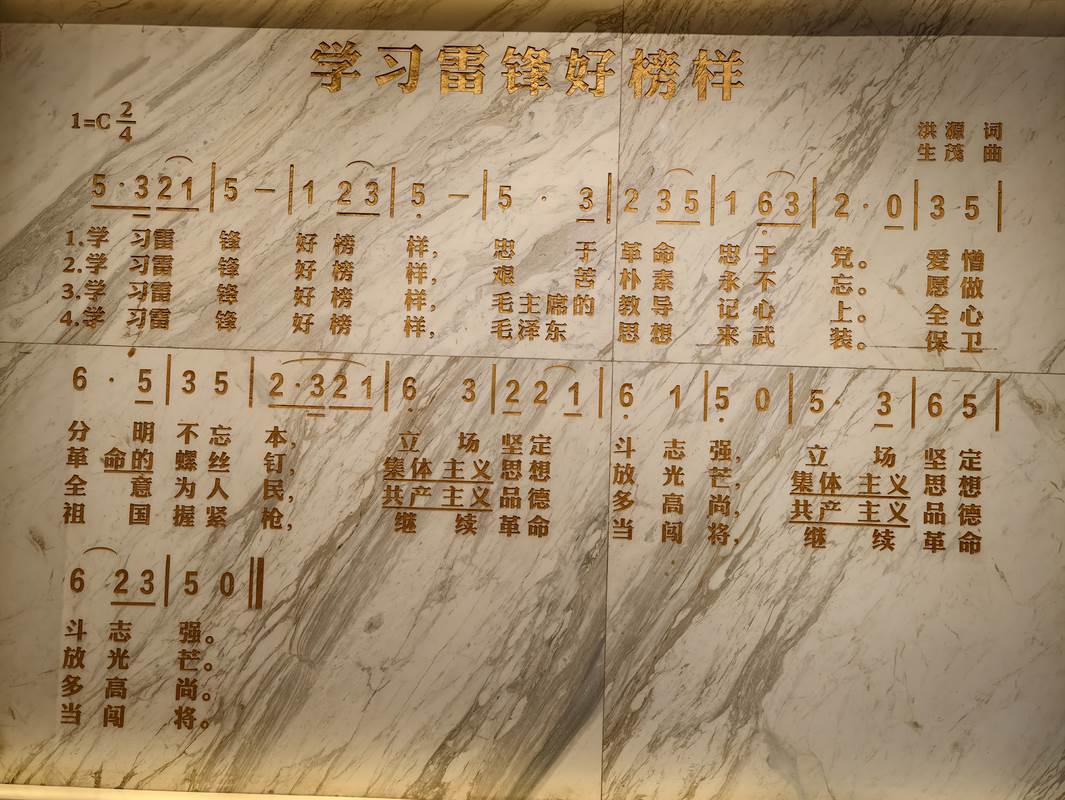 学习雷锋好榜样
1=C 2/4
洪源 词
生茂 曲
5 · 3 2 1 | 5 — | 1 2 3 | 5 — | 5 · 3 | 2 3 5 | 1 6 3 | 2 · 0 | 3 5 |
1.学 习雷 锋 好 榜 样, 忠 于 革 命 忠 于 党。 爱 憎
2.学 习雷 锋 好 榜 样, 艰 苦 朴 素 永 不 忘。 愿 做
3.学 习雷 锋 好 榜 样, 毛 主 席 的 教 导 记 心 上。 全 心
4.学 习雷 锋 好 榜 样, 毛 泽 东 思 想 来 武 装。 保 卫
6 · 5 | 3 5 | 2 · 3 2 1 | 6 3 | 2 2 1 | 6 1 | 5 0 | 5 · 3 | 6 5 |
分 明 不 忘 本, 立 场 坚 定 斗 志 强, 立 场 坚 定
革 命 的 螺 丝 钉, 集 体 主 义 思 想 放 光 芒, 集 体 主 义 思 想
全 意 为 人 民, 共 产 主 义 品 德 多 高 尚, 共 产 主 义 品 德
祖 国 握 紧 枪, 继 续 革 命 当 闯 将, 继 续 革 命
6 2 3 | 5 0 ‖
斗 志 强。
放 光 芒。
多 高 尚。
当 闯 将。